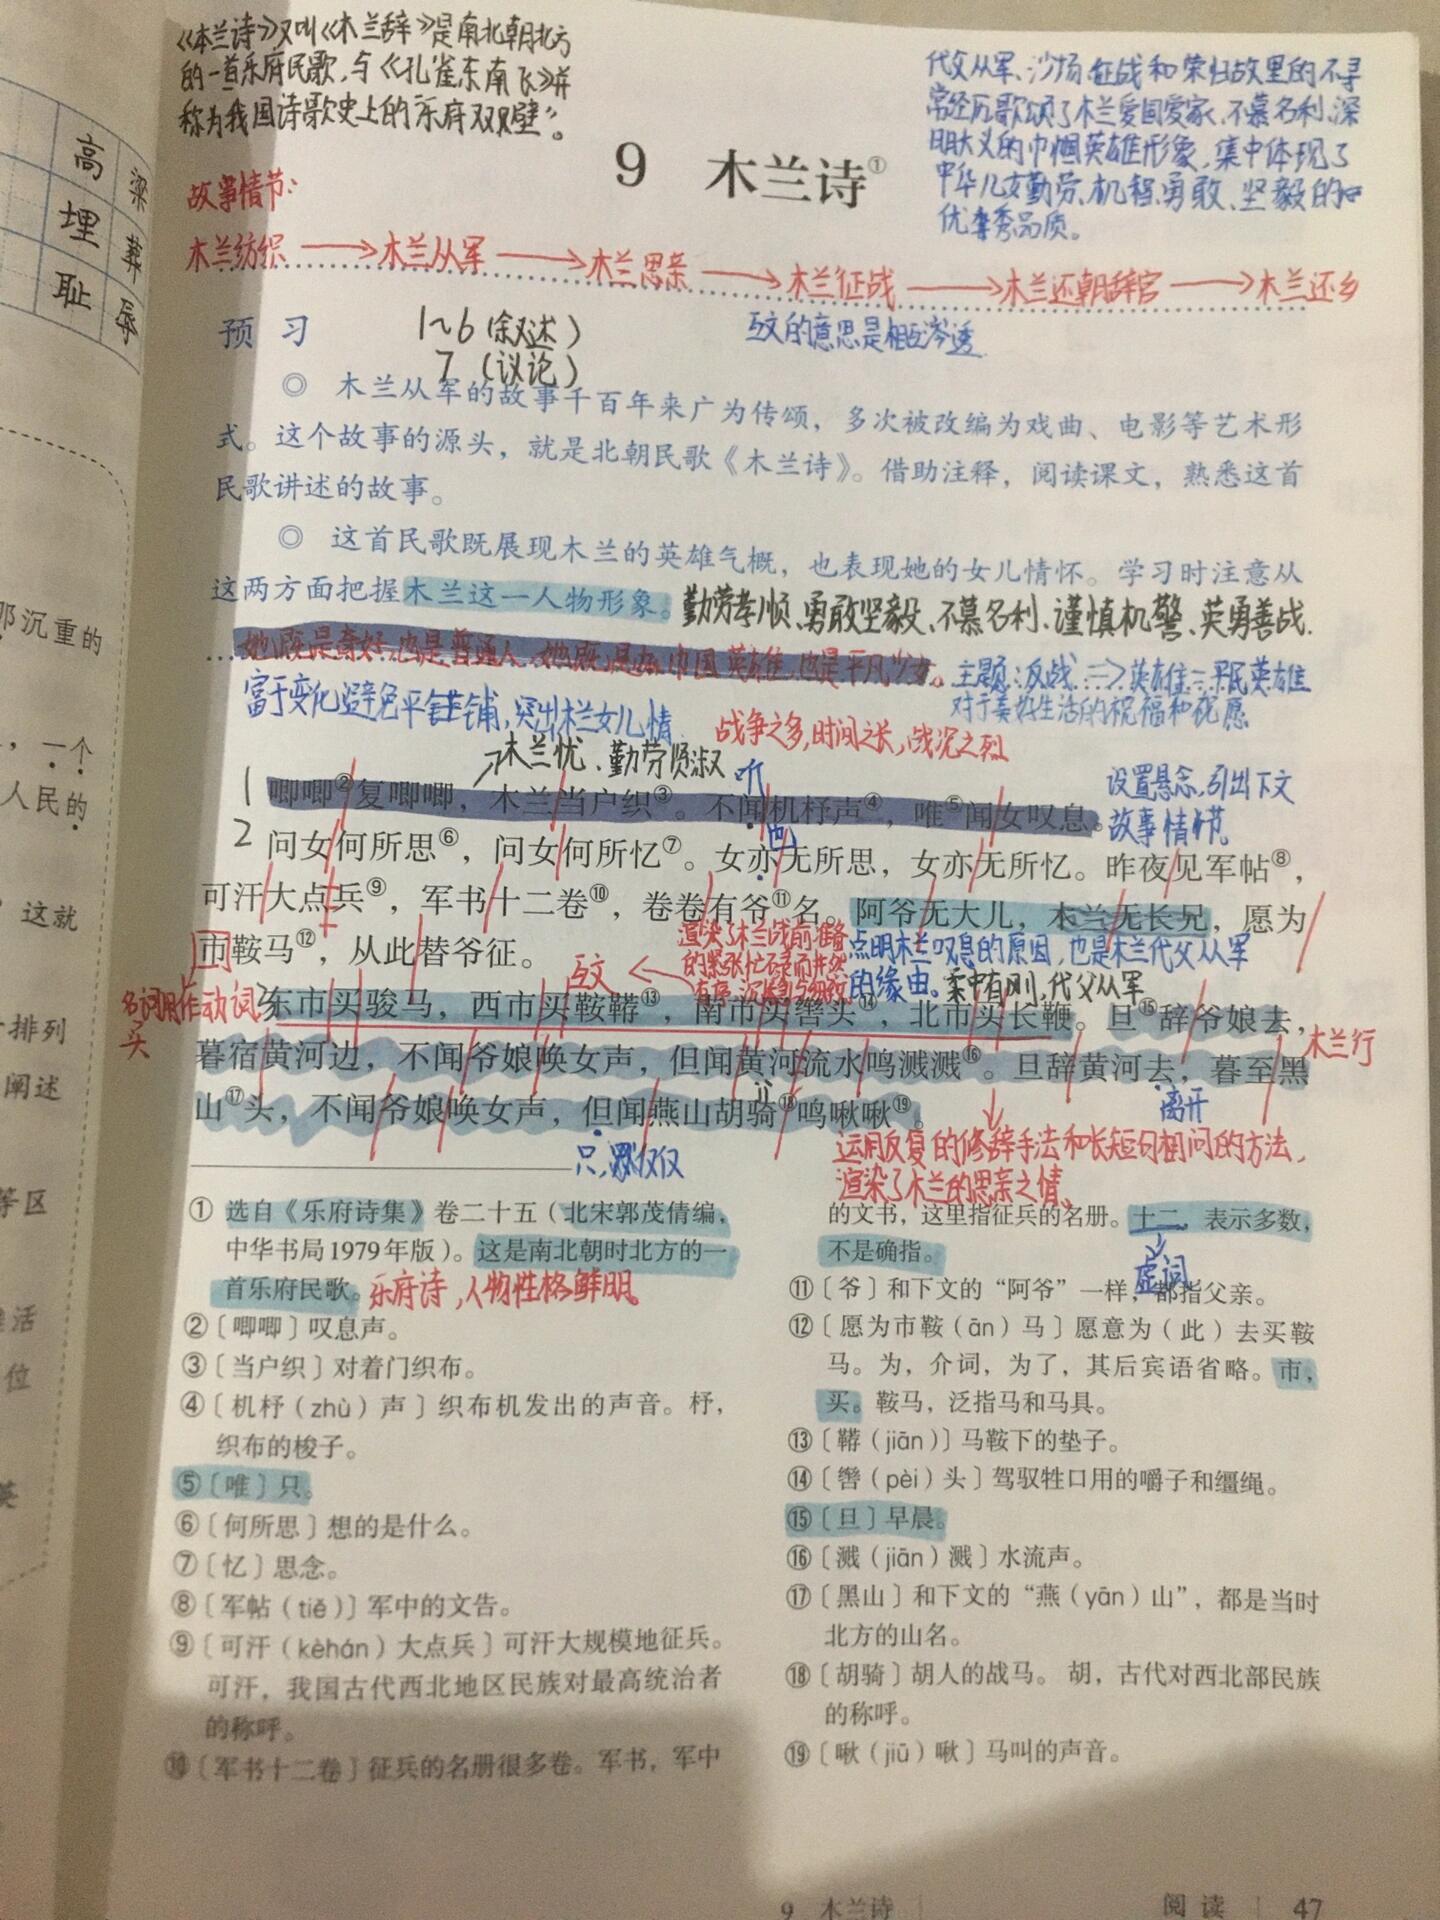 《木兰诗》又叫《木兰辞》是南北朝北方
的一首乐府民歌,与《孔雀东南飞》并
称为我国诗歌史上的“乐府双璧”。
代父从军、沙场征战和荣归故里的不寻
常经历歌颂了木兰爱国爱家、不慕名利、深
明大义的巾帼英雄形象,集中体现了
中华儿女勤劳、机智、勇敢、坚毅的
优秀品质。
高 梁
埋 葬
耻 辱
9 木兰诗①
故事情节:
木兰纺织→木兰从军→木兰思亲→木兰征战→木兰还朝辞官→木兰还乡
预习
1~6(叙述)
7(议论)
互文的意思是相互渗透
◎ 木兰从军的故事千百年来广为传颂,多次被改编为戏曲、电影等艺术形
式。这个故事的源头,就是北朝民歌《木兰诗》。借助注释,阅读课文,熟悉这首
民歌讲述的故事。
◎ 这首民歌既展现木兰的英雄气概,也表现她的女儿情怀。学习时注意从
这两方面把握木兰这一人物形象。
勤劳孝顺、勇敢坚毅、不慕名利、谨慎机警、英勇善战.
她既是奇女,也是普通人,她既是巾帼英雄,也是平凡少女。
主题:反战 英雄 平民英雄
对于美好生活的祝福和祝愿
富于变化避免平铺,突出木兰女儿情
战争之多,时间之长,战况之烈
木兰忧、勤劳贤淑
听
设置悬念,引出下文
故事情节。
1 唧唧②复唧唧,木兰当户织③。不闻机杼声④,唯⑤闻女叹息。
也
2 问女何所思⑥,问女何所忆⑦。女亦无所思,女亦无所忆。昨夜见军帖⑧,
可汗大点兵⑨,军书十二卷⑩,卷卷有爷⑪名。阿爷无大儿,木兰无长兄,愿为
市鞍马⑫,从此替爷征。
互文
渲染了木兰战前准备
的紧张忙碌而井然
点明木兰叹息的原因,也是木兰代父从军
的缘由。柔中有刚,代父从军
名词用作动词
买
3 东市买骏马,西市买鞍鞯⑬,南市买辔头⑭,北市买长鞭。旦⑮辞爷娘去,
暮宿黄河边,不闻爷娘唤女声,但闻黄河流水鸣溅溅⑯。旦辞黄河去,暮至黑
山⑰头,不闻爷娘唤女声,但闻燕山胡骑⑱鸣啾啾⑲。
木兰行
离开
只,仅仅
运用反复的修辞手法和长短句相间的方法,
渲染了木兰的思亲之情。
① 选自《乐府诗集》卷二十五(北宋郭茂倩编,
中华书局1979年版)。这是南北朝时北方的一
首乐府民歌。
乐府诗,人物性格鲜明。
②〔唧唧〕叹息声。
③〔当户织〕对着门织布。
④〔机杼(zhù)声〕织布机发出的声音。杼,
织布的梭子。
⑤〔唯〕只。
⑥〔何所思〕想的是什么。
⑦〔忆〕思念。
⑧〔军帖(tiě)〕军中的文告。
⑨〔可汗(kèhán)大点兵〕可汗大规模地征兵。
可汗,我国古代西北地区民族对最高统治者
的称呼。
⑩〔军书十二卷〕征兵的名册很多卷。军书,军中
的文书,这里指征兵的名册。十二,表示多数,
不是确指。
虚词
⑪〔爷〕和下文的“阿爷”一样,都指父亲。
⑫〔愿为市鞍(ān)马〕愿意为(此)去买鞍
马。为,介词,为了,其后宾语省略。市,
买。鞍马,泛指马和马具。
⑬〔鞯(jiān)〕马鞍下的垫子。
⑭〔辔(pèi)头〕驾驭牲口用的嚼子和缰绳。
⑮〔旦〕早晨。
⑯〔溅(jiān)溅〕水流声。
⑰〔黑山〕和下文的“燕(yān)山”,都是当时
北方的山名。
⑱〔胡骑〕胡人的战马。胡,古代对西北部民族
的称呼。
⑲〔啾(jiū)啾〕马叫的声音。
9 木兰诗 阅读 47
那沉重的
,一个
人民的
这就
排列
阐述
等区
活
位
英